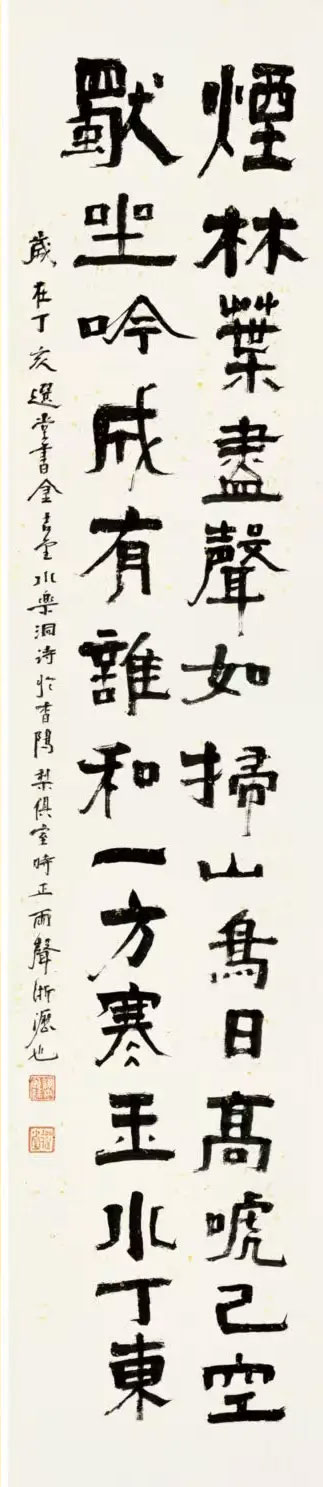 煙林葉盡聲如掃山鳥日高嗁已空
獨坐吟成有誰和一方寒玉水丁東
歲在丁亥選堂書金水樂洞诗於香隝梨俱室時正雨聲淅瀝也